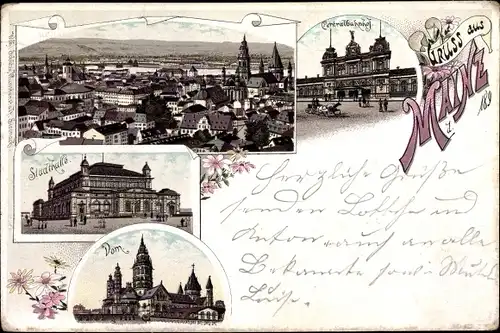 Centralbahnhof.
Gruss aus
Mainz
189
Stadthalle
Dom
Herzliche Grüße
senden Lottche und
Anton auch an alle
Bekannte
Luise.